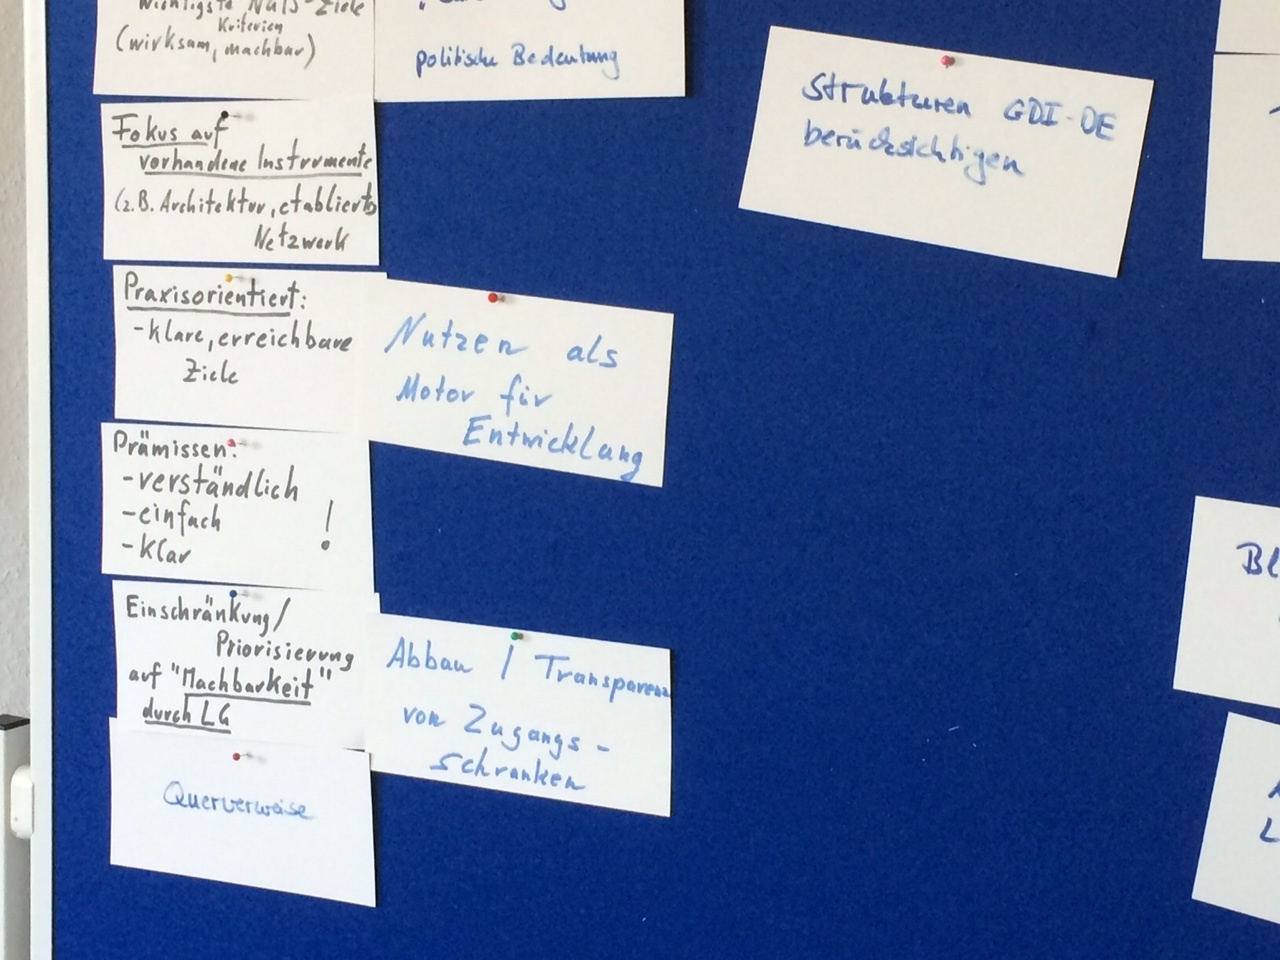 wichtigste Nuts-Ziele
Kriterien
(wirksam, machbar)
politische Bedeutung
Fokus auf
vorhandene Instrumente
(z.B. Architektur, etabliertes
Netzwerk
Praxisorientiert:
-klare, erreichbare
Ziele
Prämissen:
-verständlich
-einfach !
-klar
Einschränkung/
Priorisierung
auf "Machbarkeit"
durch LG
Querverweise
Nutzen als
Motor für
Entwicklung
Abbau / Transparenz
von Zugangs-
schranken
Strukturen GDI-DE
berücksichtigen
Bl